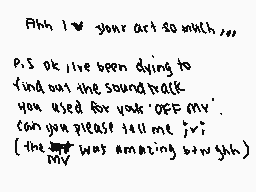 Ahh I ♥ your art so much ,,,
P.S ok ,I've been dying to
find out the soundtrack
you used for your 'OFF MV'.
can you please tell me ;v;
(the MV was amazing btw ghh)